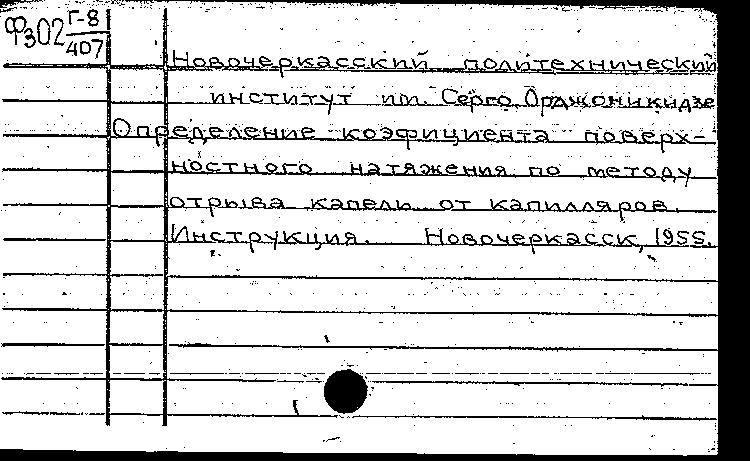 Фз02 Г-8
407
Новочеркасский политехнический
институт им. Серго Орджоникидзе
Определение коэфициента поверх-
ностного натяжения по методу
отрыва капель от капилляров.
Инструкция. Новочеркасск, 1955.